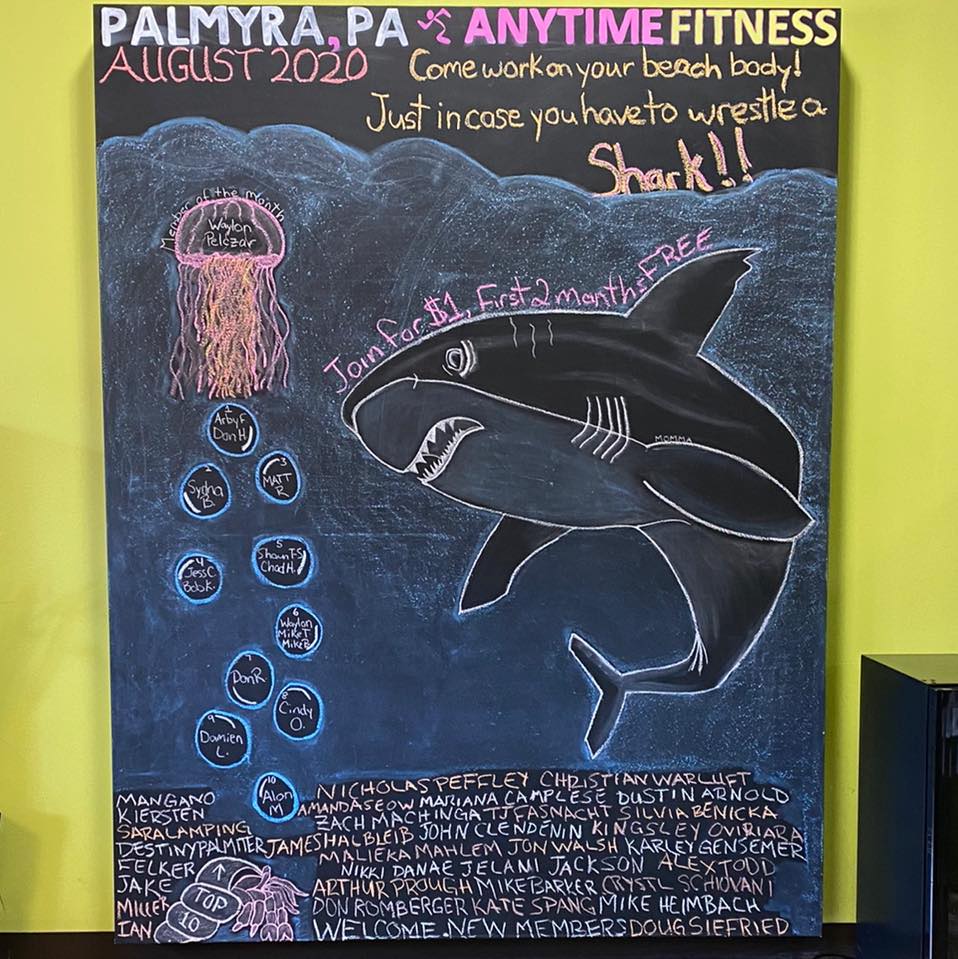 PALMYRA, PA ANYTIME FITNESS
AUGUST 2020
Come work on your beach body!
Just in case you have to wrestle a
Shark!!
Member of the month
Waylon
Pelczar
Join for $1, First 2 months FREE
MOMMA
1
Arby F
Dan H
2
Sydna
B.
3
MATT
R
4
Jess C
Bob K.
5
Shawn T-S
Chad H.
6
Waylon
Mike T
Mike B
7
Don R
8
Cindy
O.
9
Damien
L.
10
Alon
M
↑
TOP
10
MANGANO
KIERSTEN
SARA LAMPING
DESTINY PALMITER
FELKER
JAKE
MILLER
IAN
NICHOLAS PEFFLEY CHRISTIAN WARLUFT
AMANDA SEOW MARIANA CAMPLESE DUSTIN ARNOLD
ZACH MACHINGA TJ FASNACHT SILVIA BENICKA
JAMES HALBLEIB JOHN CLENDENIN KINGSLEY OVIRIARA
MALIEKA MAHLEM JON WALSH KARLEY GENSEMER
NIKKI DANAE JELANI JACKSON ALEX TODD
ARTHUR PROUGH MIKE BARKER CRYSTL SCHIOVANI
DON ROMBERGER KATE SPANG MIKE HEIMBACH
WELCOME NEW MEMBERS DOUG SIEFRIED